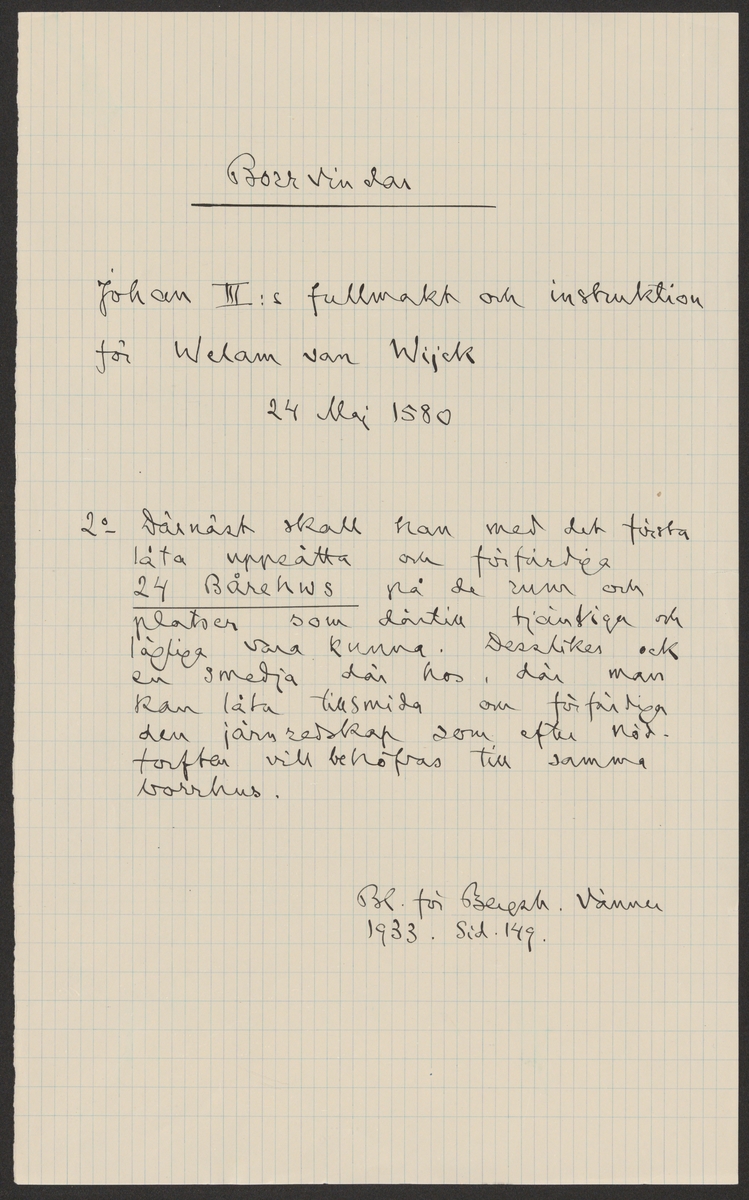 Borrvindar
Johan III:s fullmakt och instruktion
för Welam van Wijck
24 Maj 1580
2º Därnäst skall han med det första
låta uppsätta och förfärdiga
24 Bårehws på de rum och
platser som därtill tjäntliga och
lägliga vara kunna. Desslikes ock
en smedja där hos, där man
kan låta tillsmida om förfärdiga
den järnredskap som efter nöd-
torften vill behöfvas till samma
borrhus.
Bl. för Bergsh. Vänner
1933. Sid. 149.